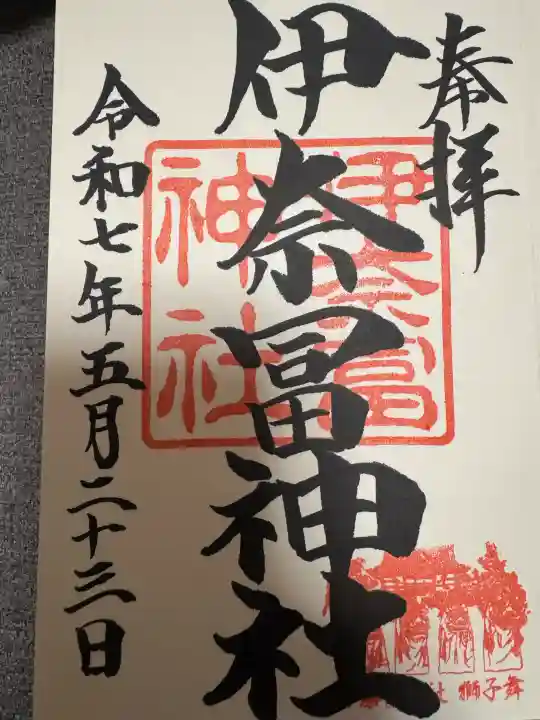 奉拝
伊奈冨神社
伊奈冨
神社
令和七年五月二十三日
社 獅子舞